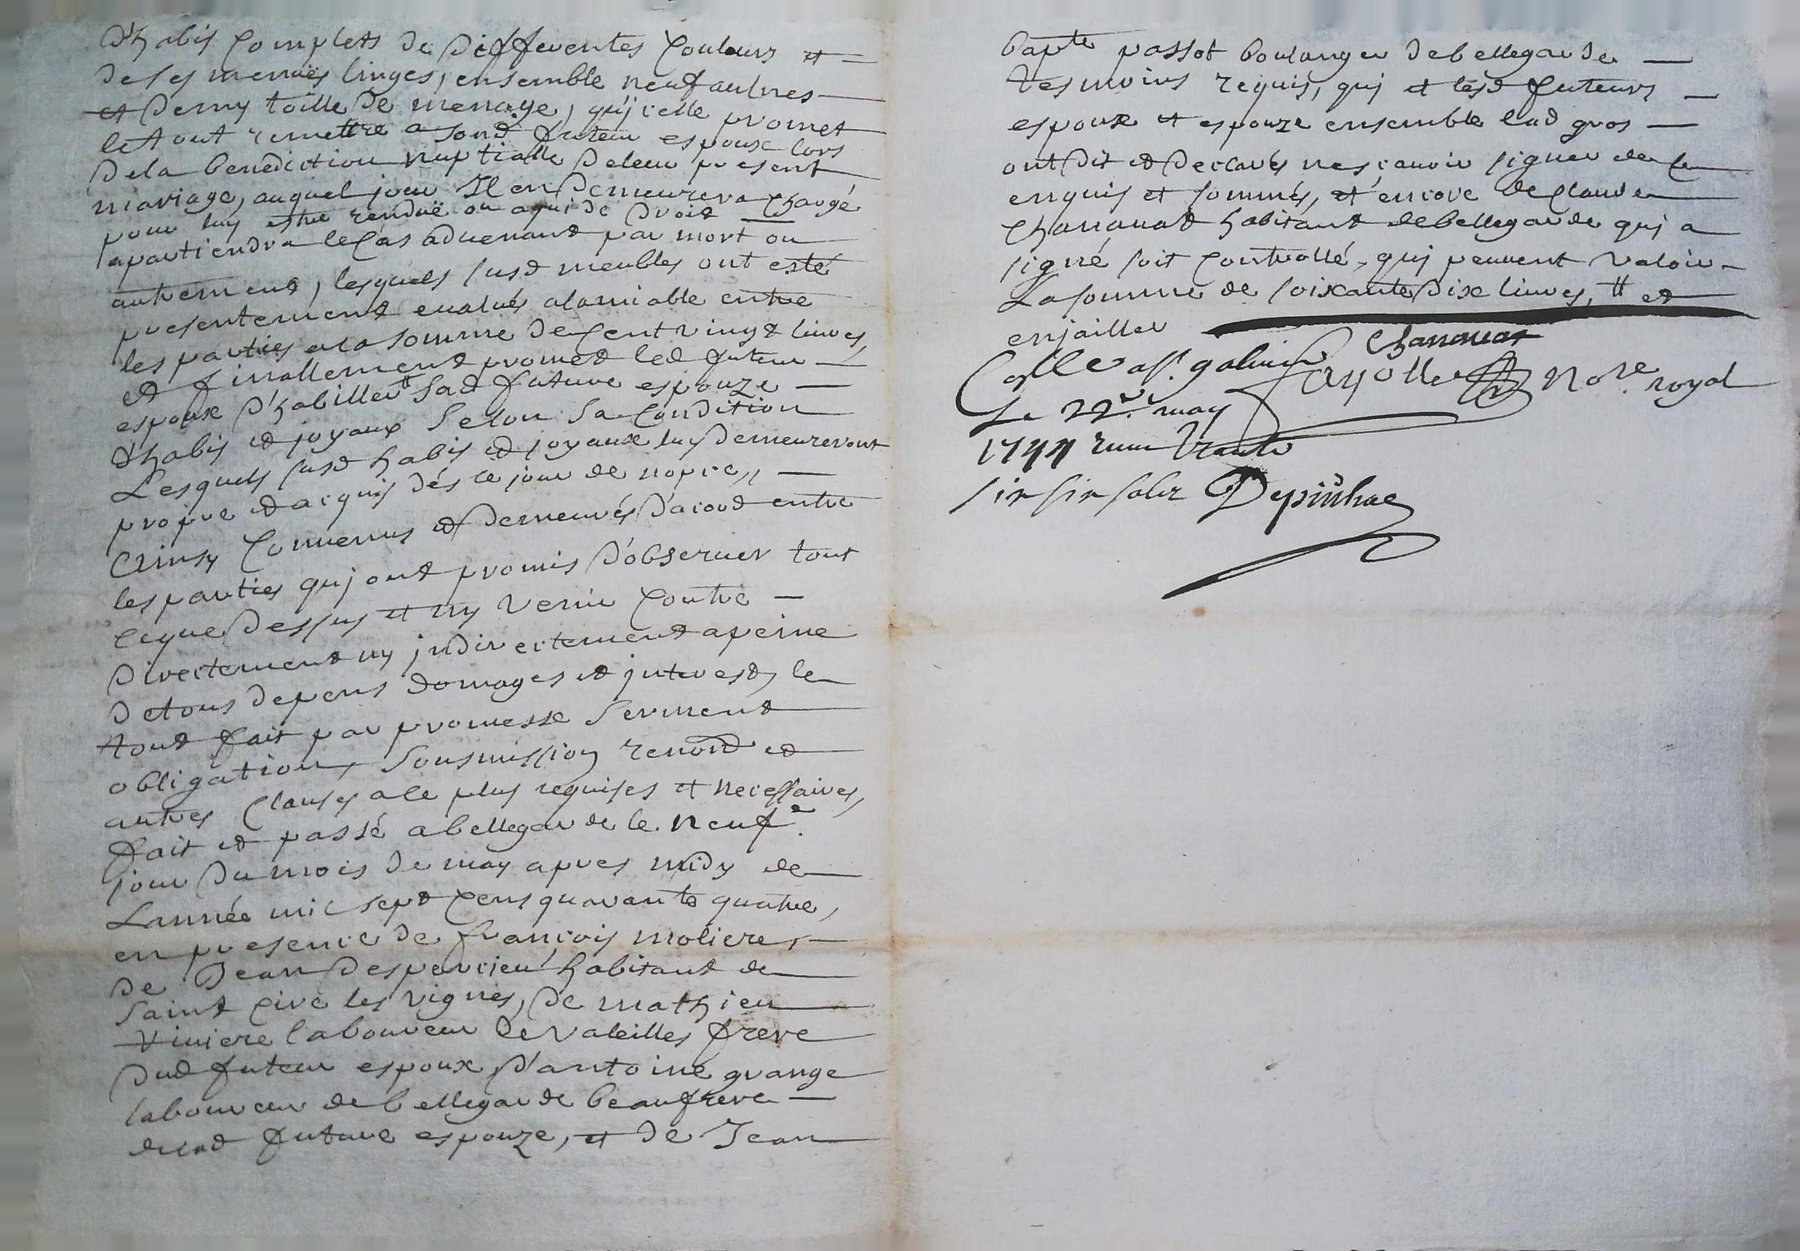 d'habis complets de differentes couleurs et
de ses menuës linges, ensemble neuf aulnes
et demy toille de menage, qu'icelle promet
le tout remettre a sond futeur espoux lors
de la benediction nuptialle de leur present
mariage, auquel jour Il en demeurera chargé
pour luy estre renduë ou a qui de droit
apartiendra le cas advenant par mort ou
autrement, lesquels susd meubles ont esté
presentement evalués a lamiable entre
les parties a la somme de cent vingt livres,
et finallement promet led futeur
espoux d'habiller sad future espouze
d'habis et joyaux selon sa condition
Lesquels susd habis et joyaux luy demeureront
propre et acquis dés le jour de nopces,
Ainsy convenus et demeurés d'acord entre
les parties qui ont promis d'observer tout
ceque dessus et ny venir contre
directement ny indirectement a peine
de tous depens domages et interests, le
tout fait par promesse serment
obligation, sousmission renond et
autres clauses a ce plus requises et necessaires,
fait et passé a bellegarde le neuf.e
jour du mois de may apres midy de
Lannée mil sept cens quarante quatre,
en presence de françois moliere,
de Jean desparcieu habitant de
saint cire les vignes, de mathieu
viniere laboureur de valeilles frere
dud futeur espoux, d'antoine grange
laboureur de bellegarde beaufrere
de lad future espouze, et de Jean
bapte passot boulanger de bellegarde
tesmoins requis, qui et lesd futeurs
espoux et espouze ensemble lad gros
ont dit et declarés ne sçavoir signer de ce
enquis et sommés, et encore de claude
chanavat habitant de bellegarde qui a
signé soit controllé, qui peuvent valoir
La somme de soixante dix livres, tt et
enjailler
Chanavat
Colle a st galmier
Le 22e. may
Nore. royal
1744
Depinhac